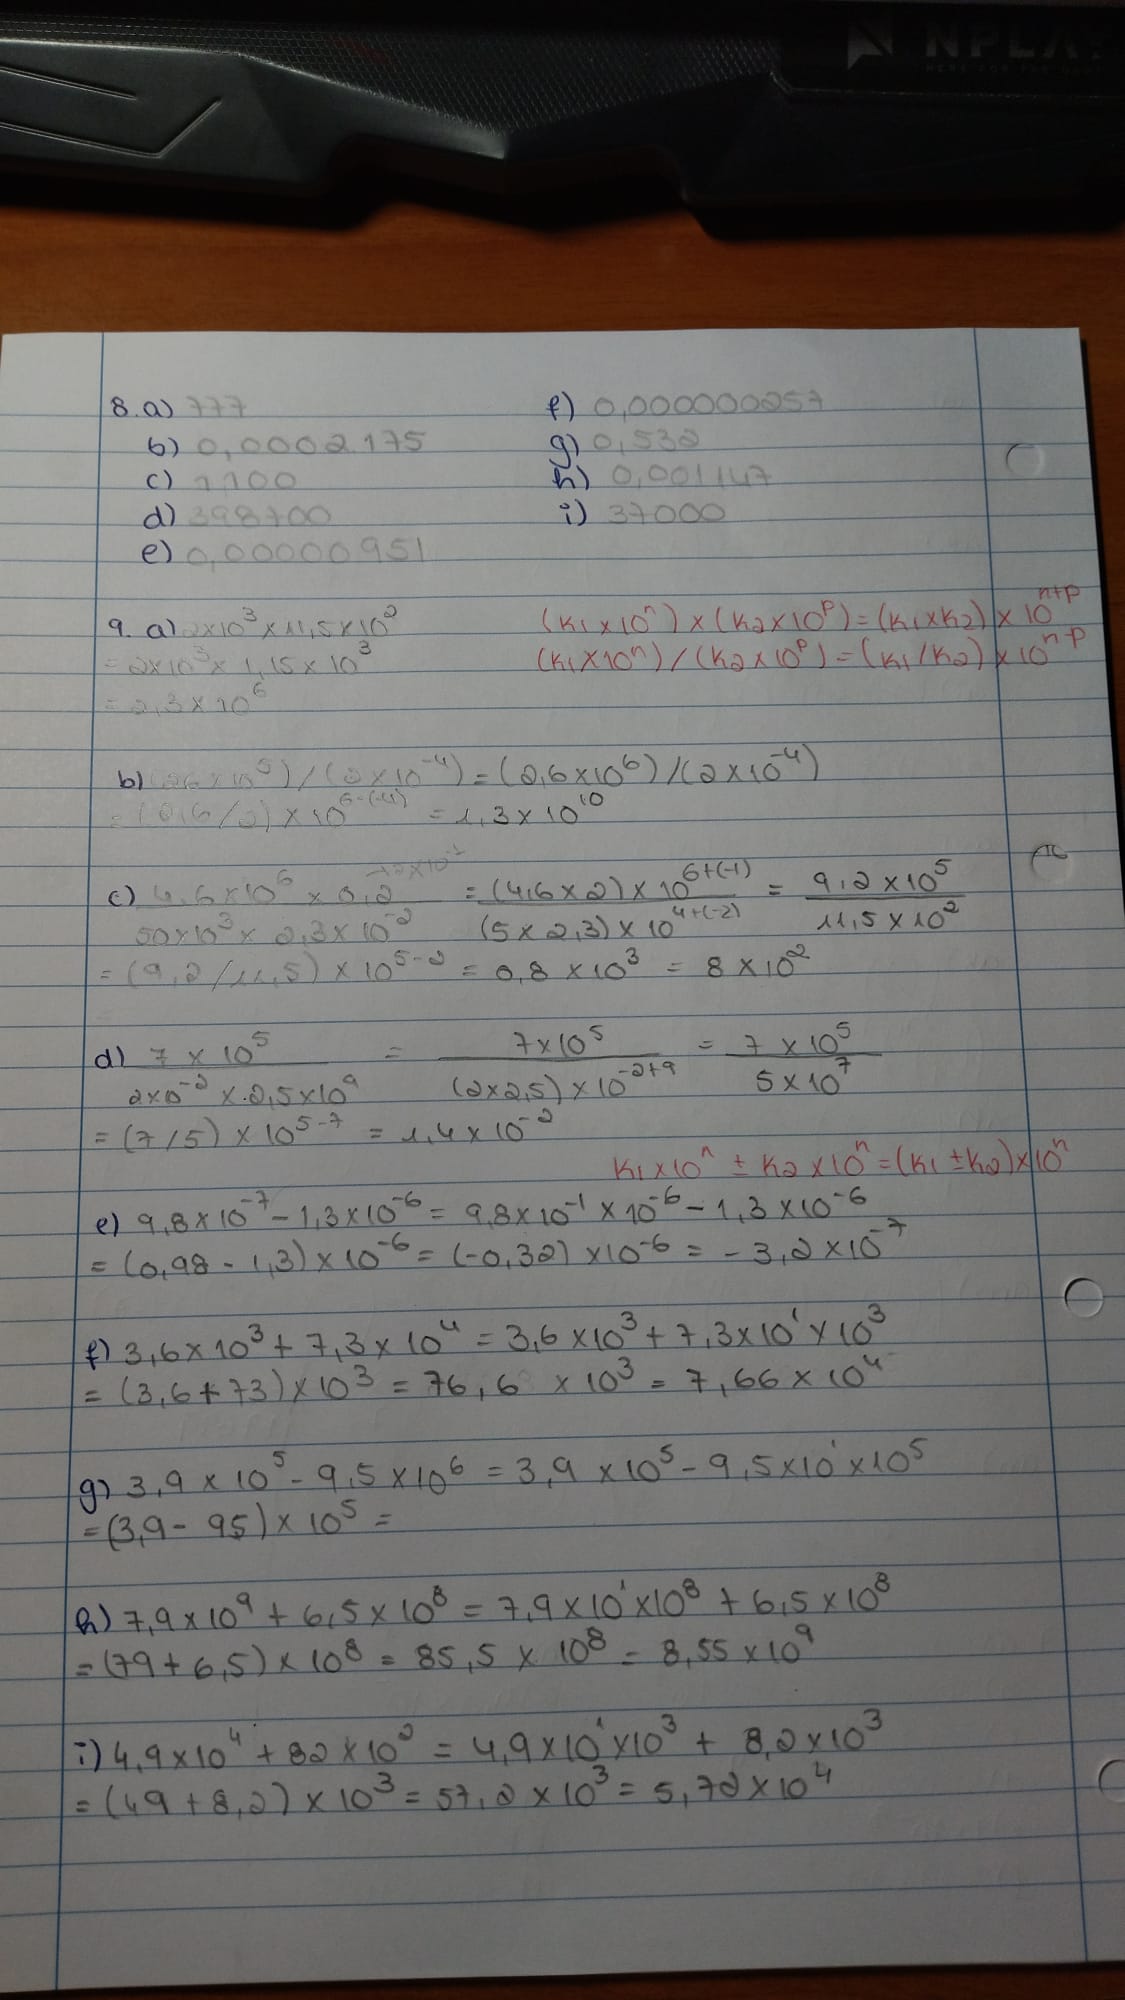 NPLAY
8. a) 777
b) 0,0002175
c) 1100
d) 398700
e) 0,00000951
f) 0,000000257
g) 0,532
h) 0,001147
i) 37000
9. a) 2x10³x11,5x10²
= 2x10³ x 1,15 x 10³
= 2,3 x 10⁶
(K1 x 10ⁿ) x (K2 x 10ᵖ) = (K1 x K2) x 10ⁿ⁺ᵖ
(K1 x 10ⁿ) / (K2 x 10ᵖ) = (K1 / K2) x 10ⁿ⁻ᵖ
b) (26 x 10⁵) / (2 x 10⁻⁴) = (2,6 x 10⁶) / (2 x 10⁻⁴)
= (2,6 / 2) x 10⁶⁻⁽⁻⁴⁾ = 1,3 x 10¹⁰
c) 4,6 x 10⁶ x 0,2 = (4,6 x 2) x 10⁶⁺⁽⁻¹⁾ = 9,2 x 10⁵
50 x 10³ x 2,3 x 10⁻² (5 x 2,3) x 10⁴⁺⁽⁻²⁾ 11,5 x 10²
= (9,2 / 11,5) x 10⁵⁻² = 0,8 x 10³ = 8 x 10²
d) 7 x 10⁵ = 7 x 10⁵ = 7 x 10⁵
2x10⁻² x 2,5x10⁹ (2x2,5) x 10⁻²⁺⁹ 5 x 10⁷
= (7/5) x 10⁵⁻⁷ = 1,4 x 10⁻²
K1 x 10ⁿ ± K2 x 10ⁿ = (K1 ± K2) x 10ⁿ
e) 9,8 x 10⁻⁷ - 1,3 x 10⁻⁶ = 9,8 x 10⁻¹ x 10⁻⁶ - 1,3 x 10⁻⁶
= (0,98 - 1,3) x 10⁻⁶ = (-0,32) x 10⁻⁶ = - 3,2 x 10⁻⁷
f) 3,6 x 10³ + 7,3 x 10⁴ = 3,6 x 10³ + 7,3 x 10¹ x 10³
= (3,6 + 73) x 10³ = 76,6 x 10³ = 7,66 x 10⁴
g) 3,9 x 10⁵ - 9,5 x 10⁶ = 3,9 x 10⁵ - 9,5 x 10¹ x 10⁵
= (3,9 - 95) x 10⁵ =
h) 7,9 x 10⁹ + 6,5 x 10⁸ = 7,9 x 10¹ x 10⁸ + 6,5 x 10⁸
= (79 + 6,5) x 10⁸ = 85,5 x 10⁸ = 8,55 x 10⁹
i) 4,9 x 10⁴ + 82 x 10² = 4,9 x 10¹ x 10³ + 8,2 x 10³
= (49 + 8,2) x 10³ = 57,2 x 10³ = 5,72 x 10⁴